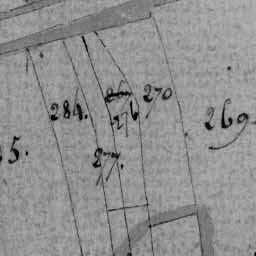 284.
270
276
269
5.
277.